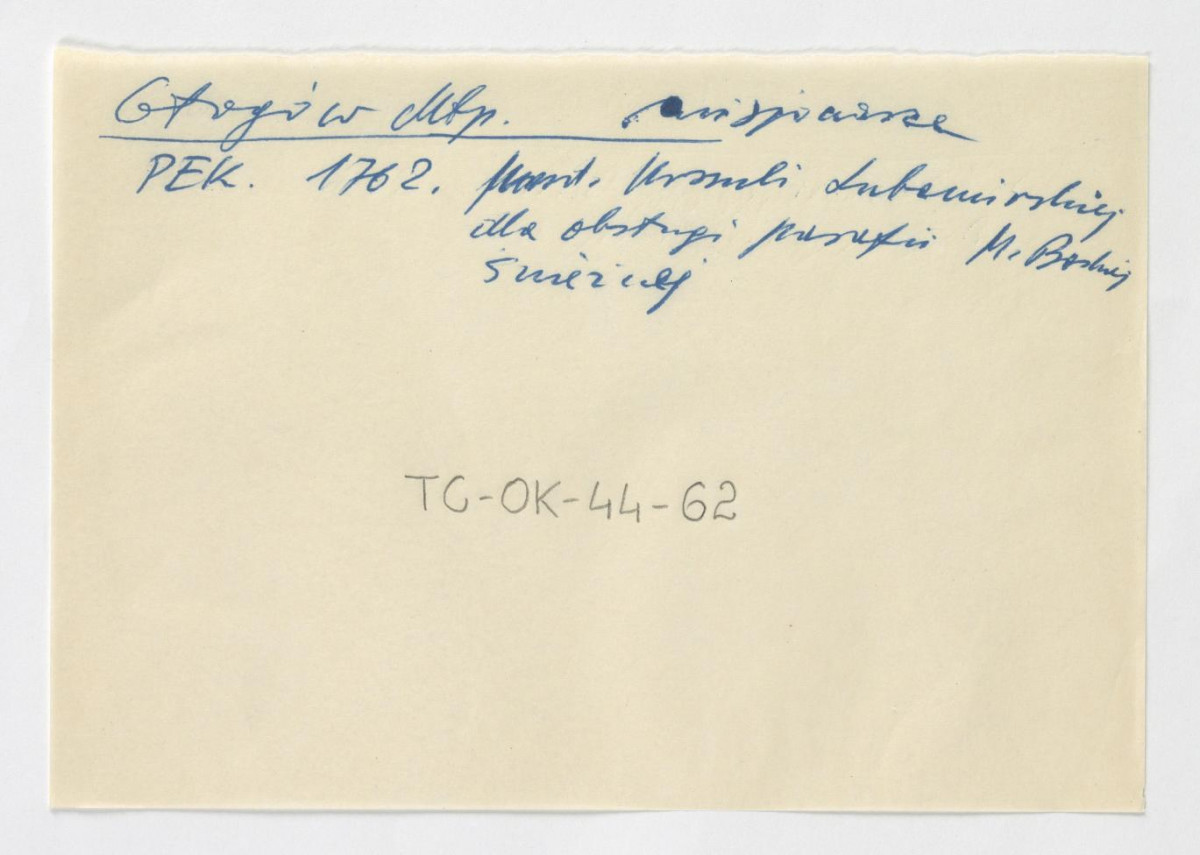 Głogów Młp. misjonarze
PEK. 1762. fund. Urszuli Lubomirskiej
dla obsługi parafii M. Boskiej
Śnieżnej
TC-OK-44-62